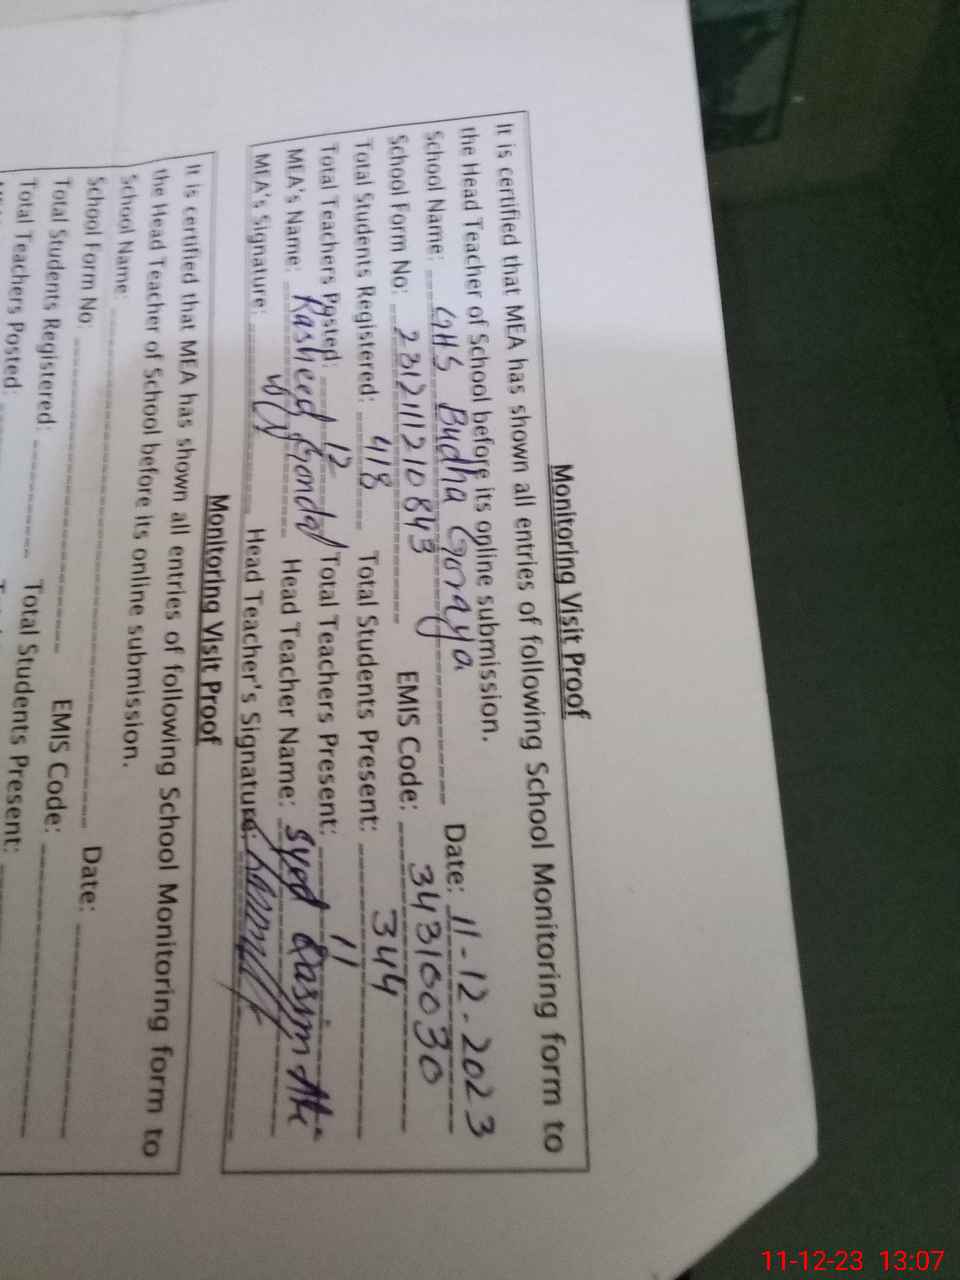 Monitoring Visit Proof
It is certified that MEA has shown all entries of following School Monitoring form to
the Head Teacher of School before its online submission.
School Name: GHS Budha Goraya Date: 11-12-2023
School Form No: 2312111210843 EMIS Code: 34310030
Total Students Registered: 418 Total Students Present: 344
Total Teachers Posted: 12 Total Teachers Present: 11
MEA's Name: Rasheed Gondal Head Teacher Name: Syed Qasim Ali
MEA's Signature: Head Teacher's Signature:
Monitoring Visit Proof
It is certified that MEA has shown all entries of following School Monitoring form to
the Head Teacher of School before its online submission.
School Name: Date:
School Form No: EMIS Code:
Total Students Registered: Total Students Present:
Total Teachers Posted:
11-12-23 13:07